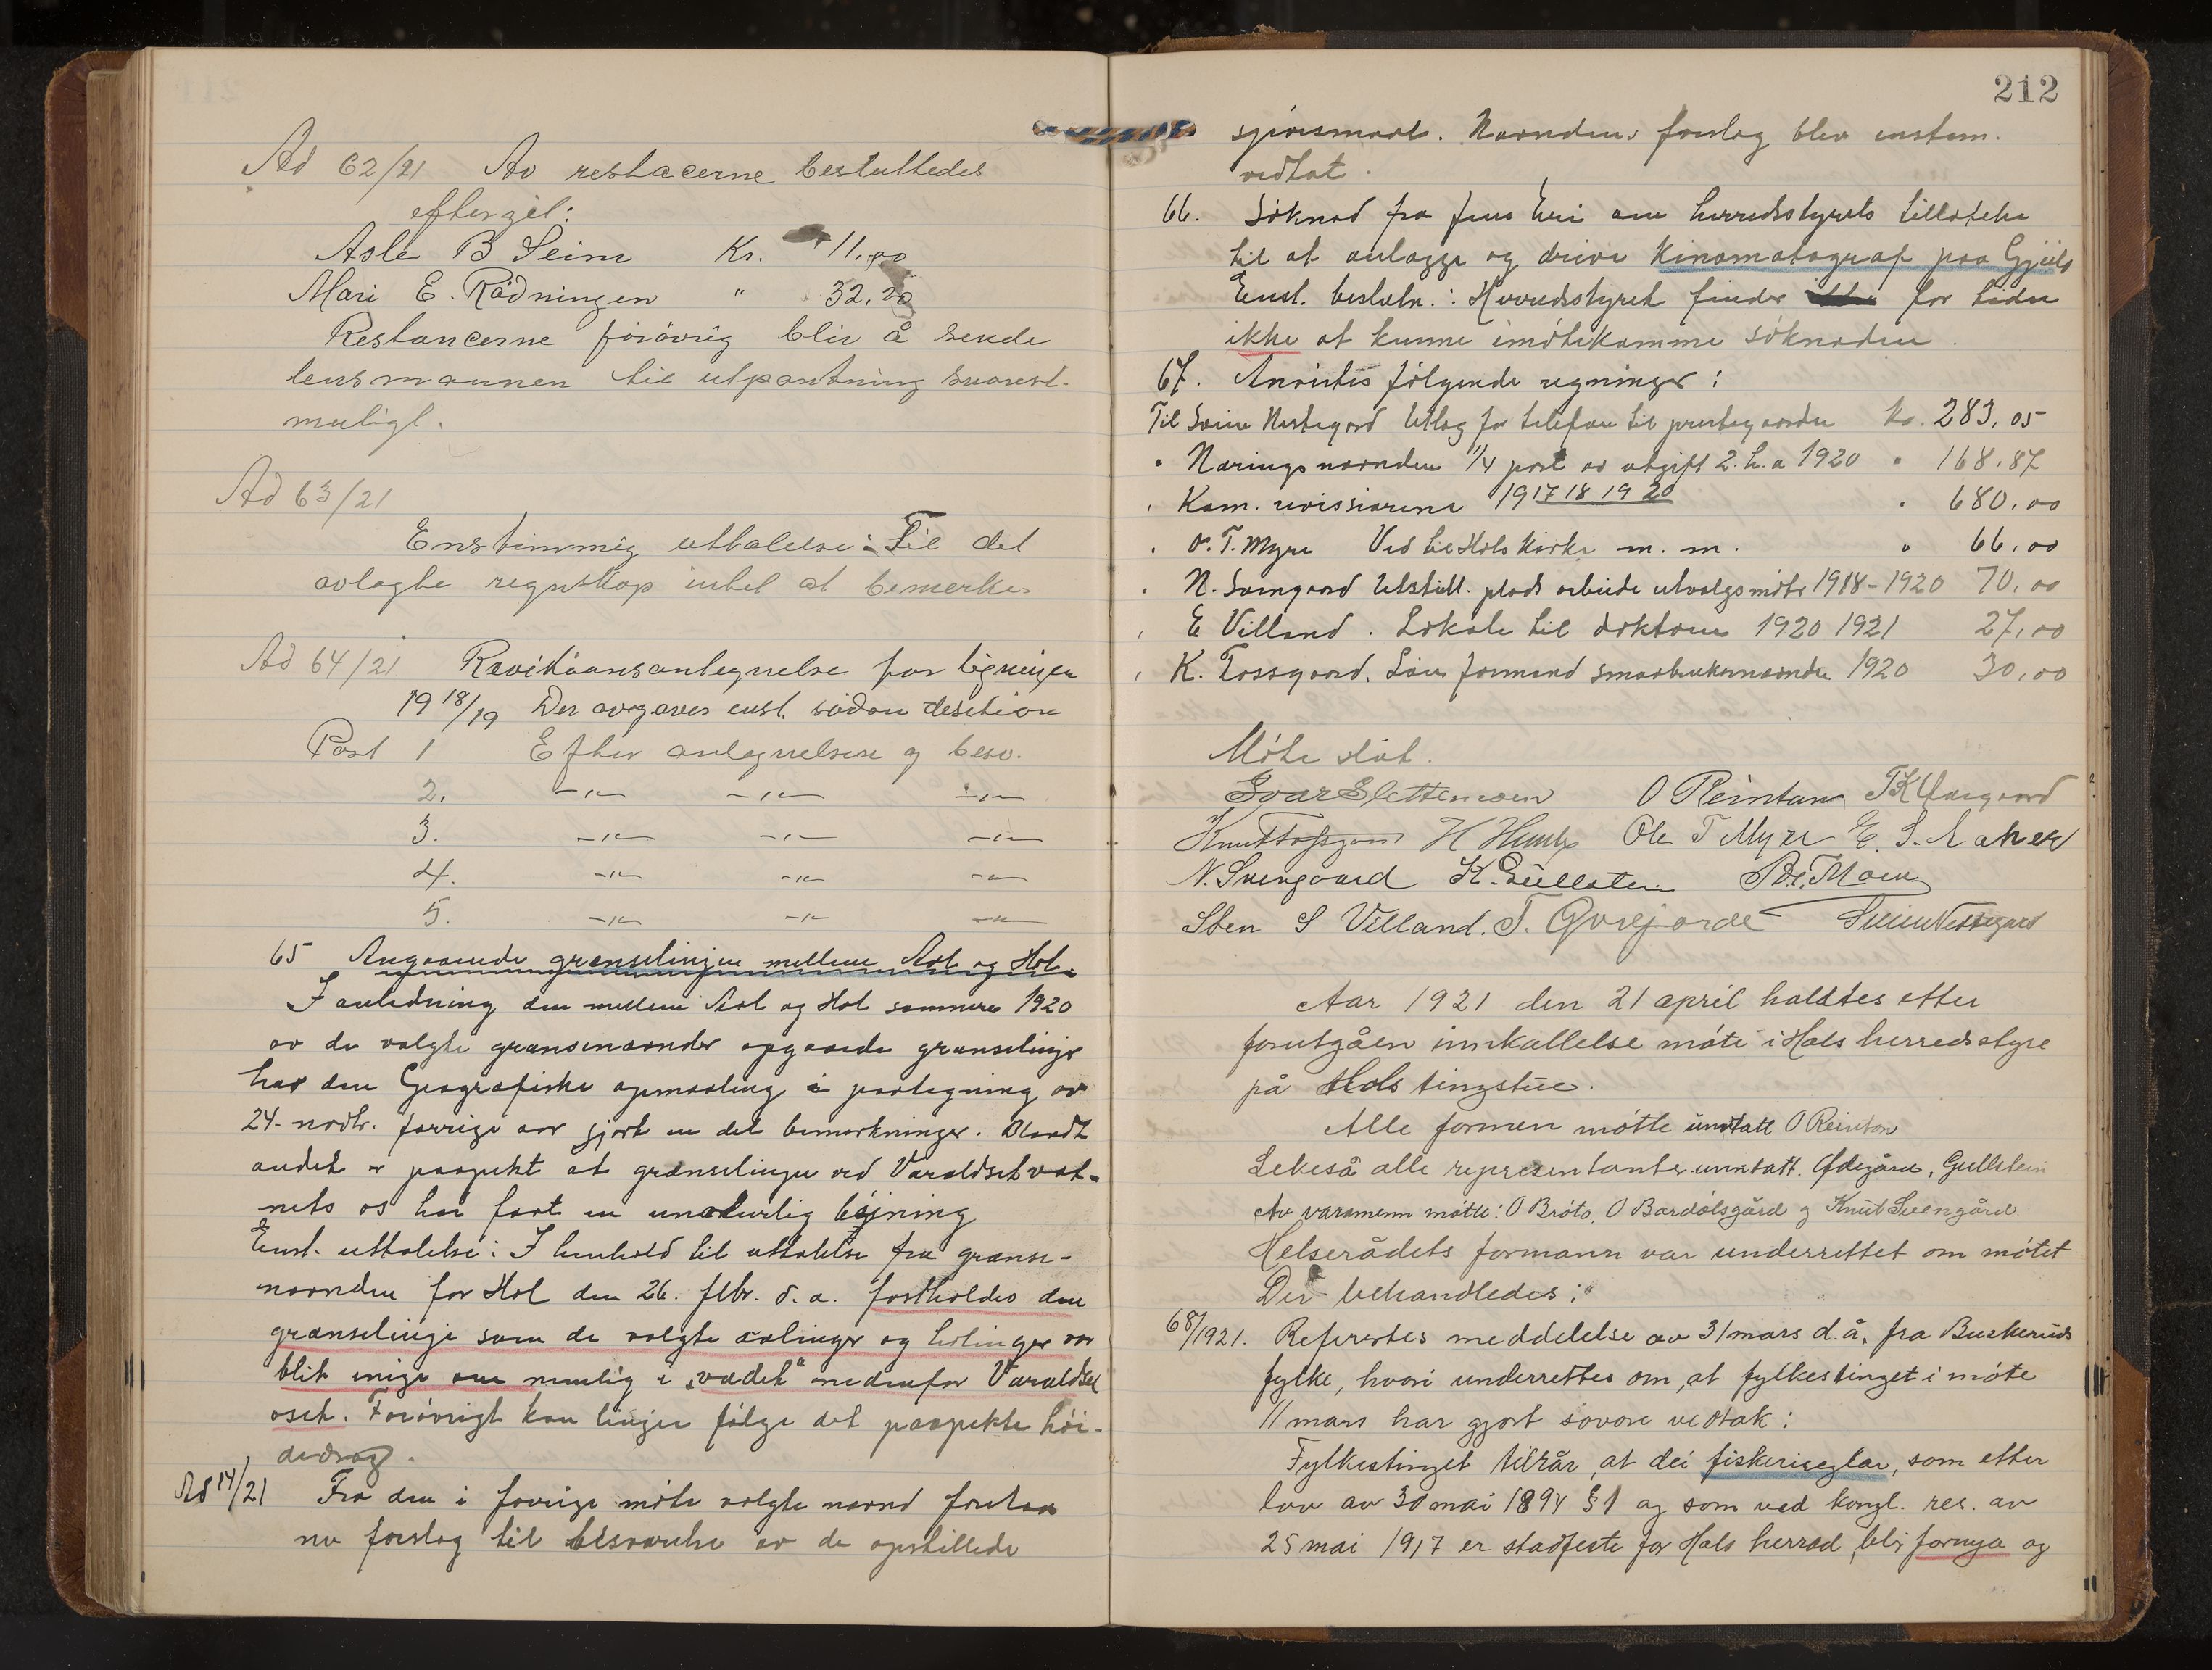 Ad 62/21 Av restacerne besluttedes
eftergit:
Asle B Seim Kr. 11,00
Mari E. Rødningen " 32,20
Restancerne forøvrig blir å sende
lensmannen til utpantning snarest-
muligt.
Ad 63/21
Enstimmig uttalelse: Til det
avlagte regnskap intet at bemerke
Ad 64/21 Revisionsantegnelse for ligningen
1918/19 Der avgaves enst. sådan desition
Post 1 Efter antegnelsen og besv.
2. -"- -"- -"-
3. -"- -"- -"-
4. -"- -"- -"-
5. -"- -"- -"-
65 Angaaende grænselinjen mellem Aal og Hol.
I anledning den mellem Aal og Hol sommeren 1920
av de valgte grænsenævnder opgaaede grænselinje
har den Geografiske opmaaling i paategning av
24. novbr. forrige aar gjort en del bemerkninger. Blandt
andet er paapekt at grænselinjen ved Varaldsetvat-
nets os har faat en unaturlig bøining
Enst. uttalelse: I henhold til uttalelse fra grænse-
nævnden for Hol den 26. febr. d. a. fastholdes den
grænselinje som de valgte aalinger og holinger var
blit enige om nemlig i "vadet" nedenfor Varaldset
oset. Forøvrigt kan linjen følge det paapekte høi-
dedrag.
Ad 14/21 Fra den i forrige møte valgte nævnd forelaa
nu forslag til besvarelse av de opstillede
212
spørsmaal. Nævndens forslag blev enstem.
vedtat.
66. Søknad fra Jens om herredsstyrets tillatelse
til at anlægge og drive kinematograf paa Gjeilo
Enst. beslutn.: Herredsstyret finder for tiden
ikke at kunne imøtekomme søknaden.
67. Anvistes følgende regninger:
Til Svein Nestegard Utlæg for telefon til prestegaarden kr. 283,05
" Næringsnævnden 1/4 part av utgift 2. h. a 1920 " 168.87
" Kom. revissiorene 1917 18 19 20 " 680,00
" O. T. Myre Ved til Hols Kirke m. m. " 66,00
" N. Svengaard Utstill. plads arbeide utvalgsmøte 1918-1920 70,00
" E Villand. Lokale til doktoren 1920 1921 27,00
" K. Tossgaard. Løn formand smaabrukernævnden 1920 30,00
Møte slut.
Ivar Slettemoen O Reinton TK
Knut Tofsgaard H Ole T Myre E. S.
N. Svengaard K. Gullsten Moen
Sten S Villand. T. Gvrejorde Svein Nestegard
Aar 1921 den 21 april haldtes etter
forutgåen innkallelse møte i Hols herredsstyre
på Hols tingstue.
Alle formen møtte unntatt O Reinton
Lekeså alle representanter unntatt. Ødegård, Gullstein
Av varamenn møtte: O Bråto, O Bardølsgård og Knut Svengård.
Helserådets formann var underrettet om møtet
Der behandledes:
68/1921. Refertes meddelelse av 31 mars d.å. fra Buskeruds
fylke, hvori underrettes om, at fylkestinget i møte
11 mars har gjort sovore vedtak:
Fylkestinget tilrår, at dei fiskerireglar, som etter
lov av 30 mai 1894 § 1 og som ved kongl. res. av
25 mai 1917 er stadfeste for Hols herrad, blir fornya og